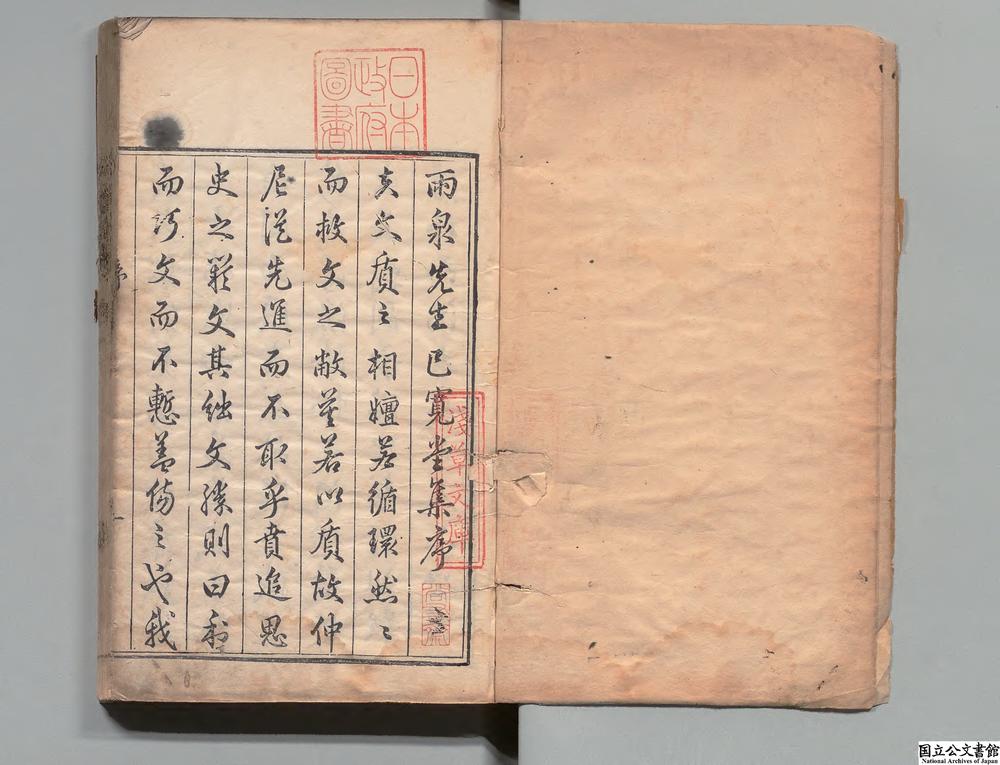 日本
政府
圖書
雨泉先生巳寬堂集序
淺草文庫
夫文質之相嬗若循環然〻
而救文之敝莫若以質故仲
尼從先進而不取乎賁追思
史之文其絀文勝則曰利
而巧文而不慙蓋傷之也我
序
一
国立公文書館
National Archives of Japan